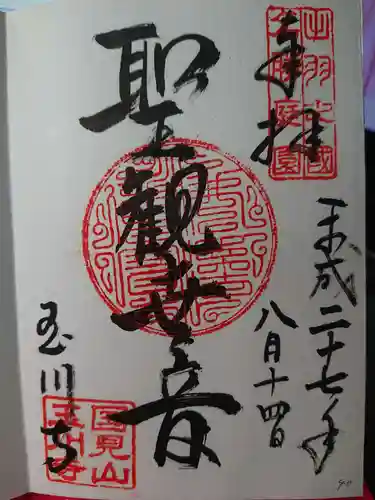 奉拝
平成二十七年
八月十四日
聖観世音
玉川寺
国見山
玉川寺